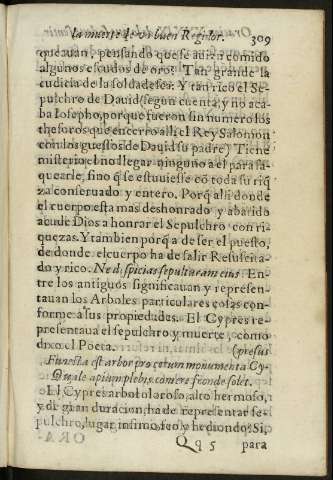 la muerte de vn buen Regidor. 309
queauan, pensando que se auiẽ comido
algunos escudos de oro: Tan grande la
cudicia de la soldadesca. Y tan rico el Se-
pulchro de Dauid (segun cuenta, y no aca-
ba Iosepho, porque fueron sin numero los
thesoros que encerro alli el Rey Salomon
con los guessos de Dauid su padre) Tiene
misterio el no llegar ninguno a el para sa-
quearle, sino q̃ se estuuiesse cõ toda su riq̃
za conseruado y entero. Porq̃ alli donde
el cuerpo esta mas deshonrado y abatido
acude Dios a honrar el Sepulchro con ri-
quezas. Y tambien porq̃ a de ser el puesto,
de donde el cuerpo ha de salir Resuscita-
do y rico. Ne despicias sepulturam eius. En-
tre los antiguos significauan y represen-
tauan los Arboles particulares cosas con-
forme a sus propiedades. El Cypres re-
presentaua el sepulchro y muerte, como
dixo el Poeta. (presus
Funesta est arbor procerum monumenta Cy-
Quale apium plebis comere fronde solet.
El Cypres arbol oloroso, alto hermoso,
y de gran duracion, ha de representar se-
pulchro, lugar infimo, feo y hediondo. Si,
Qq 5 para